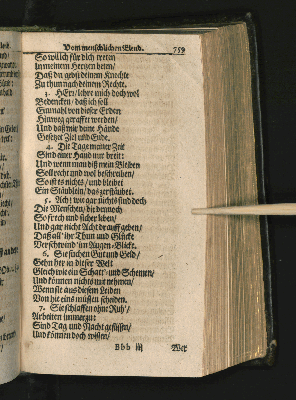 Vom menschlichen Elend. 759
So will ich für dich treten
In meinem Hertzen beten/
Daß du gebst deinem Knechte
Zu thun nach deinem Rechte.
3. HErr/ lehre mich doch wol
Bedencken/ daß ich soll
Einmal von dieser Erden
Hinweg geraffet werden/
Und daß mir deine Hände
Gesetzet Ziel und Ende.
4. Die Tage meiner Zeit
Sind einer Hand nur breit:
Und wenn man diß mein Bleiben
Soll recht und wol beschreiben/
So ist es nichts/ und bleibet
Ein Stäublein/ das zerstäubet.
5. Ach! wie gar nichts sind doch
Die Menschen/ die dennoch
So frech und sicher leben/
Und gar nicht Acht drauff geben/
Daß all' ihr Thun und Glücke
Verschwind' im Augen-Blicke.
6. Sie suchen Gut und Geld/
Gehn her in dieser Welt
Gleich wie ein Schatt'- und Schemen/
Und können nichts mit nehmen/
Wenn sie aus diesem Leiden
Von hie eins müssen scheiden.
7. Sie schlaffen ohne Ruh'/
Arbeiten immerzu:
Sind Tag und Nacht geflissen/
Und können doch wissen/
Bbb iij Wer